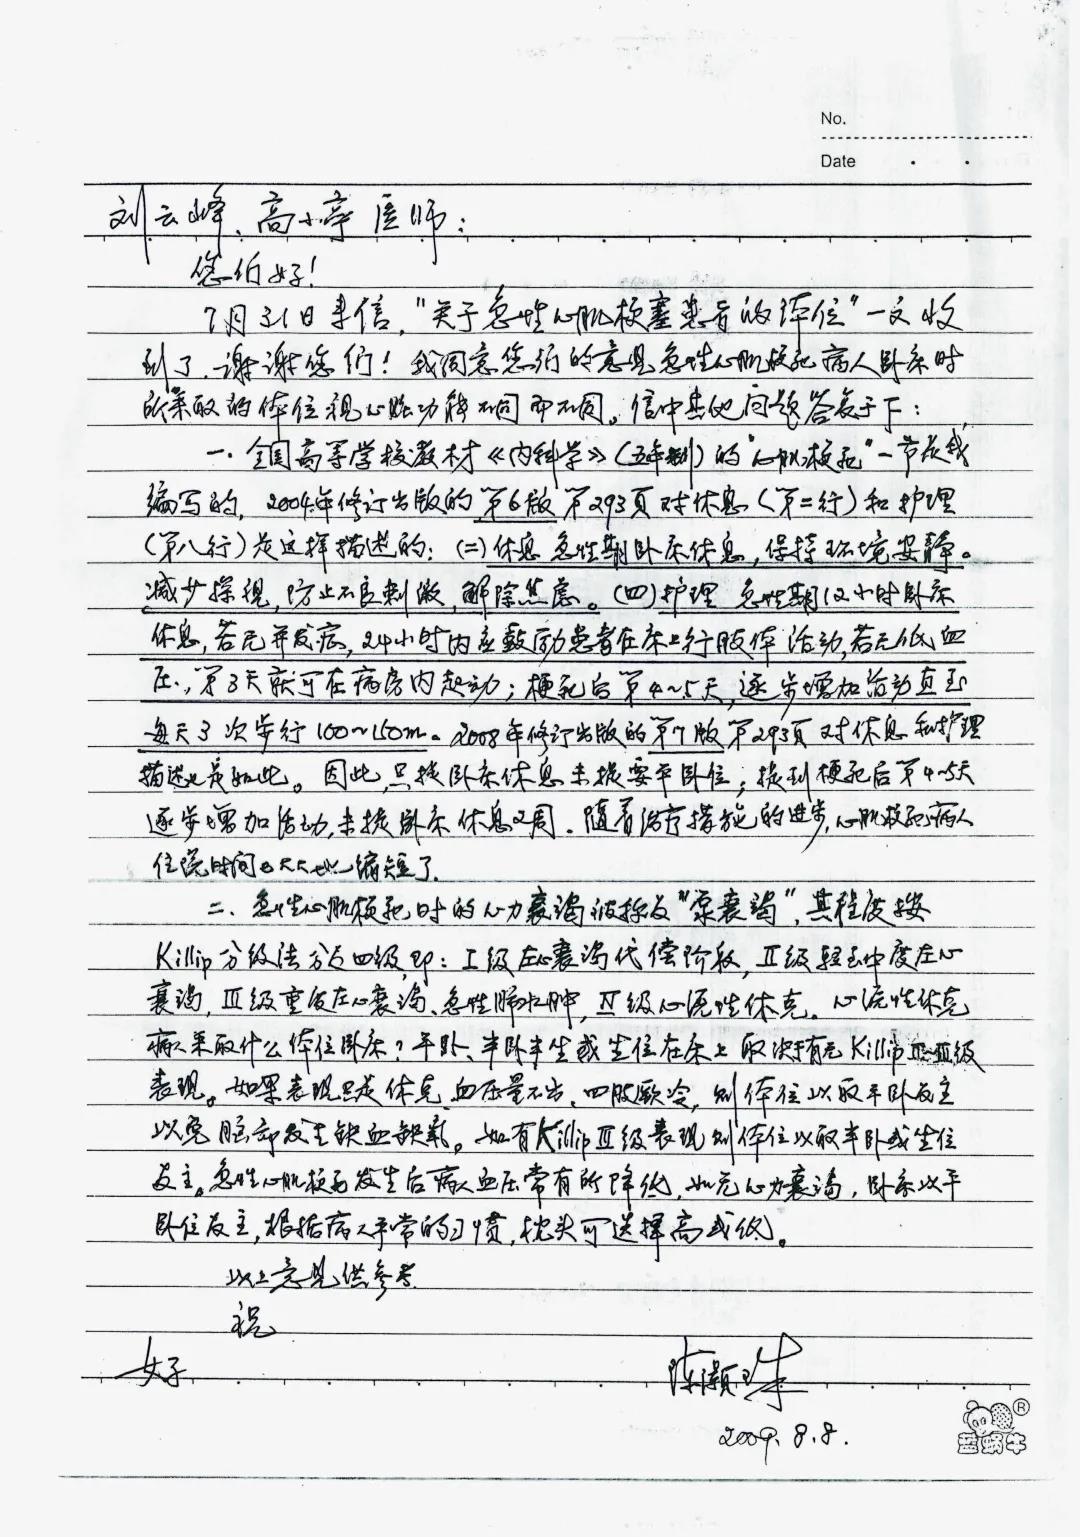 No.
Date
刘云峰、高小亭医师：
您们好！
7月31日来信，"关于急性心肌梗塞患者的体位"一文收
到了，谢谢您们！我同意您们的意见急性心肌梗死病人卧床时
所采取的体位视心脏功能不同而不同。信中其他问题答复于下：
一、全国高等学校教材《内科学》（五年制）的"心肌梗死"一节是我
编写的，2004年修订出版的第6版第293页对休息（第二行）和护理
（第八行）是这样描述的：（二）休息 急性期卧床休息，保持环境安静。
减少探视，防止不良刺激，解除焦虑。（四）护理 急性期12小时卧床
休息，若无并发症，24小时内应鼓励患者在床上行肢体活动，若无低血
压，第3天就可在病房内起动；梗死后第4～5天，逐步增加活动直至
每天3次步行100～150m。2008年修订出版的第7版第293页对休息和护理
描述也是如此。因此，只提卧床休息未提要平卧位；提到梗死后第4~5天
逐步增加活动，未提卧床休息2周。随着治疗措施的进步，心肌梗死病人
住院时间也大大地缩短了。
二、急性心肌梗死时的心力衰竭被称为"泵衰竭"，其程度按
Killip分级法分为四级，即：Ⅰ级左心衰竭代偿阶段，Ⅱ级轻至中度左心
衰竭，Ⅲ级重度左心衰竭、急性肺水肿，Ⅳ级心源性休克。心源性休克
病人采取什么体位卧床？平卧、半卧半坐或坐位在床上取决于有无Killip Ⅲ级
表现。如果表现只是休克，血压量不出、四肢厥冷，则体位以取平卧为主
以免脑部发生缺血缺氧。如有Killip Ⅲ级表现则体位以取半卧或坐位
为主。急性心肌梗死发生后病人血压常有所降低，如无心力衰竭，卧床以平
卧位为主，根据病人平常的习惯，枕头可选择高或低。
以上意见供参考
祝
好
陈灏珠
2009.8.8.
蓝蜗牛
®